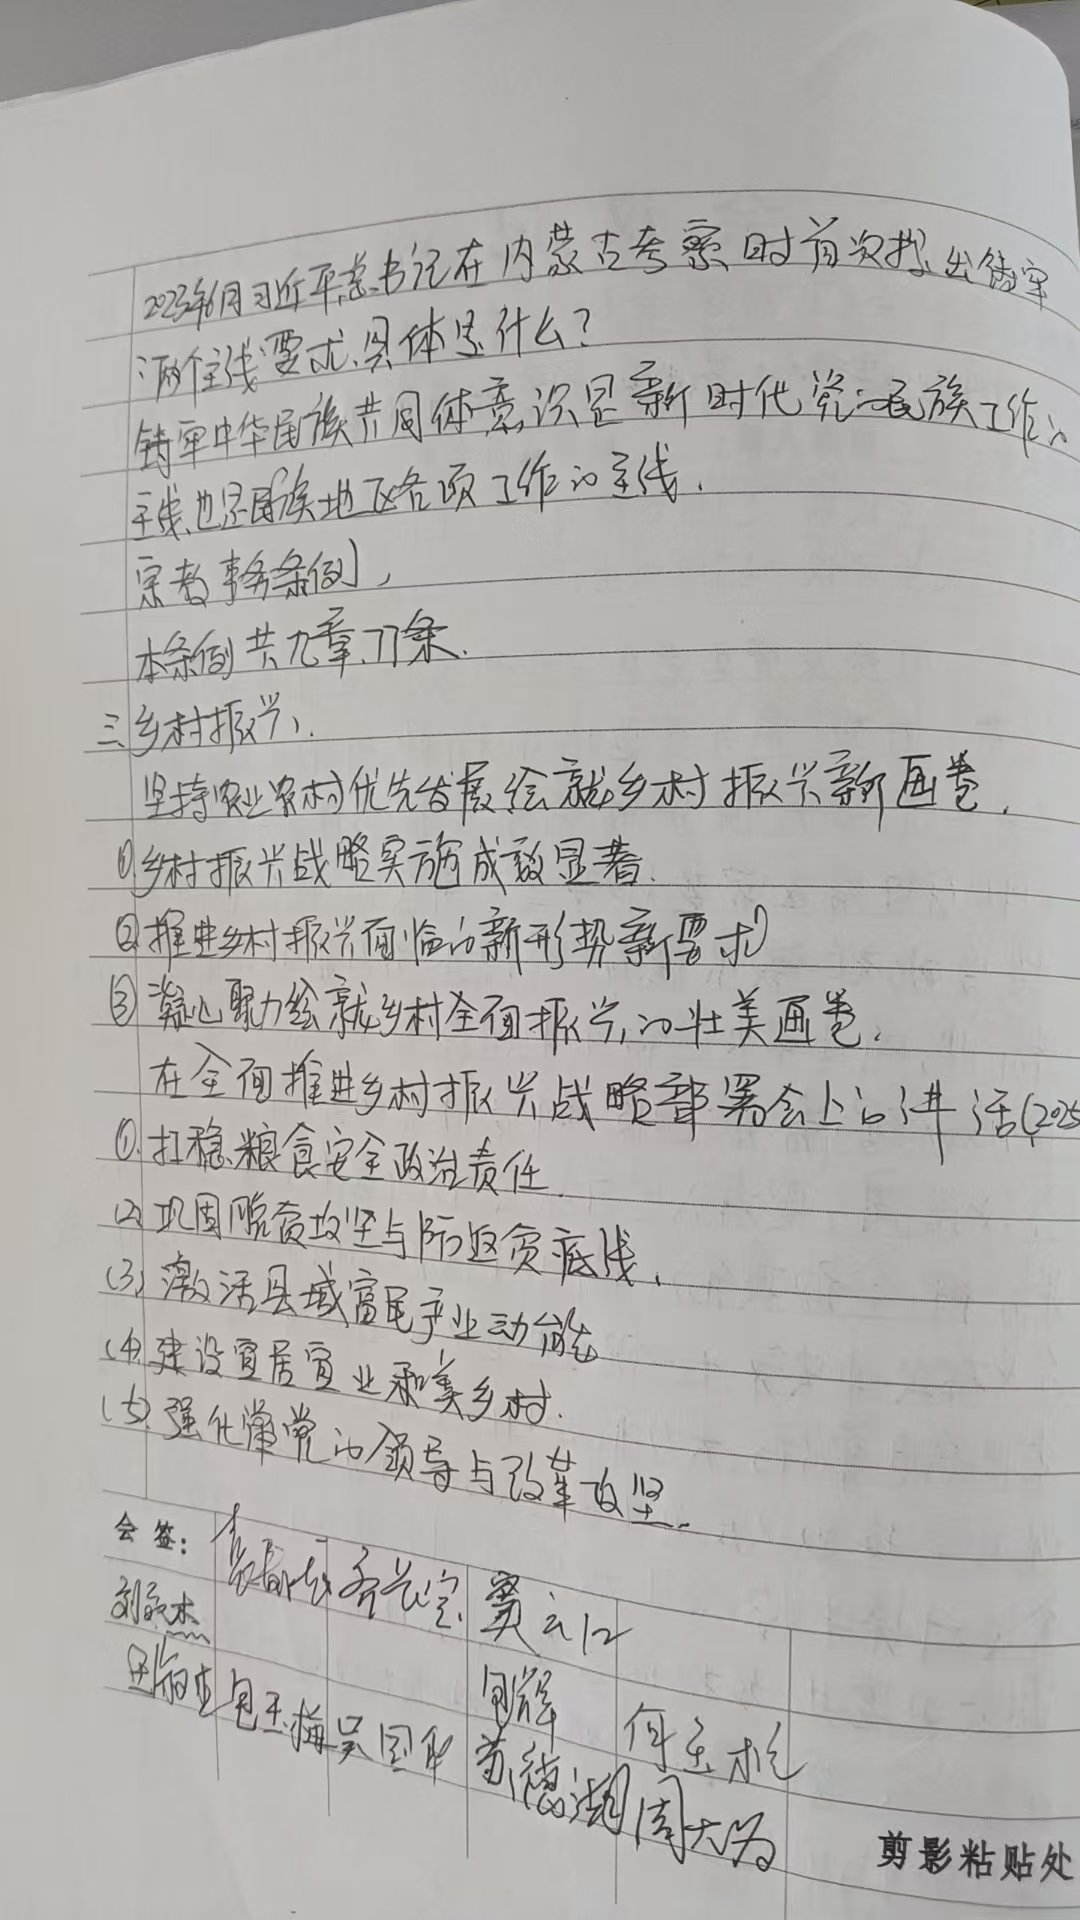 2023年6月习近平总书记在内蒙古考察时首次提出铸牢
"两个主线"要求、具体是什么?
铸牢中华民族共同体意识是新时代党的民族工作的
主线,也是民族地区各项工作的主线.
宗教事务条例,
本条例共九章、77条.
三、乡村振兴、
坚持农业农村优先发展绘就乡村振兴新画卷.
①乡村振兴战略实施成效显著.
②推进乡村振兴面临的新形势新要求
③凝心聚力绘就乡村全面振兴的壮美画卷.
在全面推进乡村振兴战略部署会上的讲话(2025
(1)扛稳粮食安全政治责任.
(2)巩固脱贫攻坚与防返贫底线.
(3)激活县域富民产业动能
(4)建设宜居宜业和美乡村.
(5)强化党的领导与改革攻坚.
会签:
包玉梅 吴国 包辉 何玉
苏德 周大为
剪影粘贴处